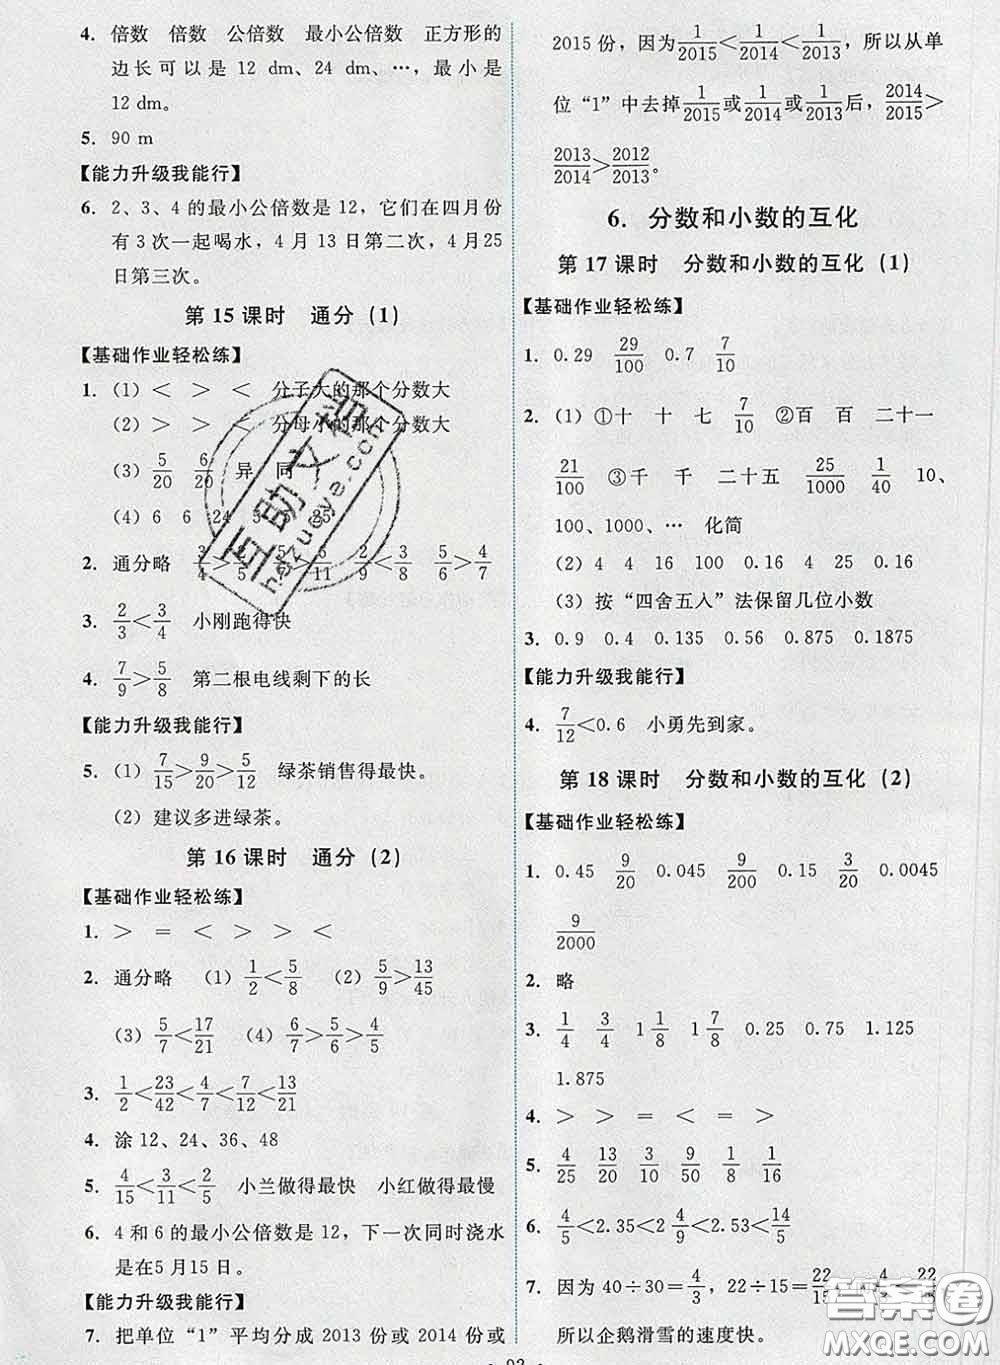 4. 倍数 倍数 公倍数 最小公倍数 正方形的
边长可以是 12 dm、24 dm、…,最小是
12 dm。
5. 90 m
【能力升级我能行】
6. 2、3、4 的最小公倍数是 12,它们在四月份
有 3 次一起喝水,4 月 13 日第二次,4 月 25
日第三次。
第 15 课时 通分(1)
【基础作业轻松练】
1. (1) < > < 分子大的那个分数大
(2) > > < 分母小的那个分数大
(3) 5/20 6/20 异 同
(4) 6 6 24
2. 通分略 3/4 > 5/11 2/9<3/8 5/6>4/7
3. 2/3<3/4 小刚跑得快
4. 7/9>5/8 第二根电线剩下的长
【能力升级我能行】
5. (1) 7/15>9/20>5/12 绿茶销售得最快。
(2) 建议多进绿茶。
第 16 课时 通分(2)
【基础作业轻松练】
1. > = < > > <
2. 通分略 (1) 1/2<5/8 (2) 5/9>13/45
(3) 5/7<17/21 (4) 6/7>5/6>4/5
3. 1/2<23/42<4/7<7/12<13/21
4. 涂 12、24、36、48
5. 4/15<3/11<2/5 小兰做得最快 小红做得最慢
6. 4 和 6 的最小公倍数是 12,下一次同时浇水
是在5 月 15 日。
【能力升级我能行】
7. 把单位“1”平均分成 2013 份或 2014 份或
2015 份,因为1/2015<1/2014<1/2013,所以从单
位“1”中去掉1/2015或1/2014或1/2013后,2014/2015>
2013/2014>2012/2013。
6. 分数和小数的互化
第 17 课时 分数和小数的互化(1)
【基础作业轻松练】
1. 0.29 29/100 0.7 7/10
2. (1) ①十 十 七 7/10 ②百 百 二十一
21/100 ③千 千 二十五 25/1000 1/40 10、
100、1000、… 化简
(2) 4 4 16 100 0.16 0.16
(3) 按“四舍五入”法保留几位小数
3. 0.9 0.4 0.135 0.56 0.875 0.1875
【能力升级我能行】
4. 7/12<0.6 小勇先到家。
第 18 课时 分数和小数的互化(2)
【基础作业轻松练】
1. 0.45 9/20 0.045 9/200 0.15 3/20 0.0045
9/2000
2. 略
3. 1/4 3/4 1 1/8 1 7/8 0.25 0.75 1.125
1.875
4. > > = < = >
5. 4/25 13/20 3/10 9/50 1/8 1/16
6. 4/5<2.35<2 4/9<2.53<14/5
7. 因为 40÷30=4/3,22÷15=22/15 4/3<22/15
所以企鹅滑雪的速度快。
互助文档
hdzuoye.com
答案圈
MXQE.COM